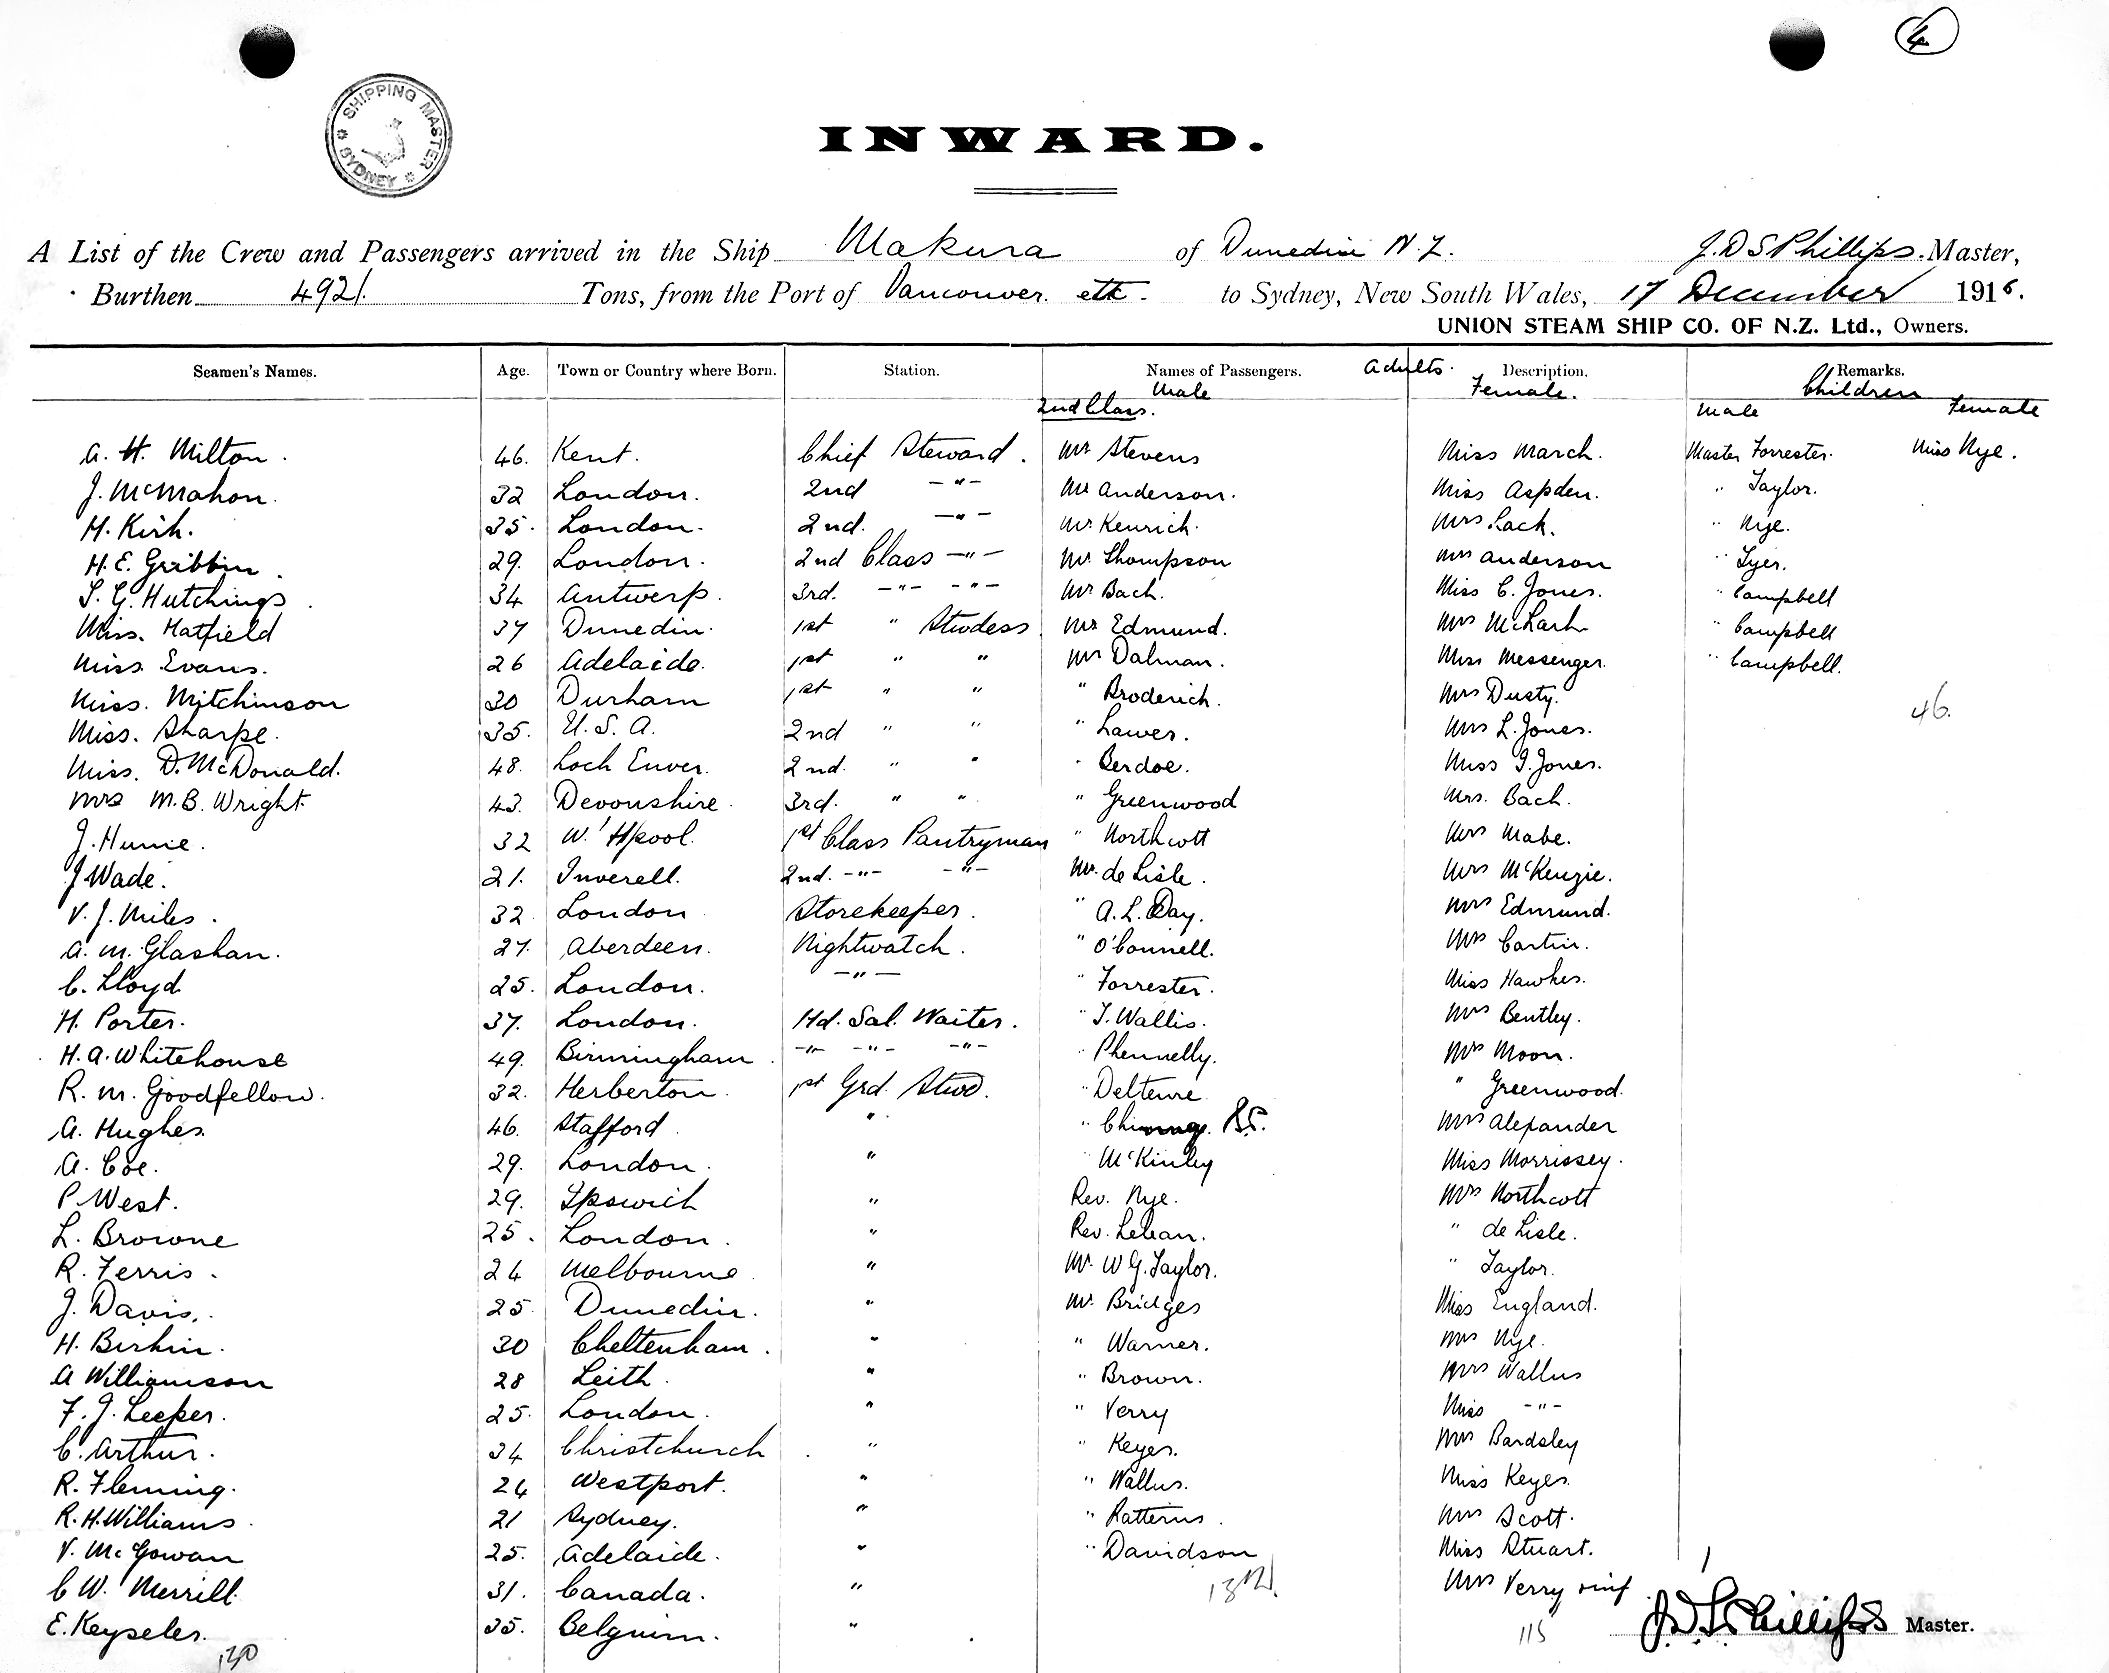 4
SHIPPING MASTER SYDNEY
INWARD.
A List of the Crew and Passengers arrived in the Ship Makura of Dunedin N.Z. J.D.S Phillips. Master,
Burthen 4921. Tons, from the Port of Vancouver. etc. to Sydney, New South Wales, 17 December 1916.
UNION STEAM SHIP CO. OF N.Z. Ltd., Owners.
Seamen's Names. Age. Town or Country where Born. Station. Names of Passengers. Adults. Description. Remarks.
Male Female. Children
2nd Class. Male Female
A. H. Milton. 46. Kent. Chief Steward. Mr Stevens Miss March. Master Forrester. Miss Nye.
J. McMahon. 32 London. 2nd -"- Mr Anderson. Miss Aspden. " Taylor.
H. Kirk. 35. London. 2nd. -"- Mr Kenrich. Mrs Lack. " Nye.
H. E. Gribbin. 29. London. 2nd Class -"- Mr Thompson Mrs Anderson " Tyer.
S. G. Hutchings. 34 Antwerp. 3rd. -"- -"- Mr Bach. Miss C. Jones. " Campbell
Miss. Hatfield 37 Dunedin. 1st " Stwdess Mr Edmund. Mrs " Campbell
Miss. Evans. 26 Adelaide. 1st " " Mr Dalman. Miss Messenger. " Campbell.
Miss. Mitchinson 30 Durham 1st " " " Broderich. Mrs Dusty. 46.
Miss. Sharpe. 35. U. S. A. 2nd " " " Lawer. Mrs L. Jones.
Miss. D. McDonald. 48. Loch Enver. 2nd. " " " Berdoe. Miss I. Jones.
Mrs M. B. Wright. 43. Devonshire. 3rd. " " " Greenwood Mrs. Bach.
J. Hume. 32 W. H'pool. 1st Class Pantryman " Northcott Mrs Mabe.
J Wade. 21. Inverell. 2nd. -"- -"- Mr. de Lisle. Mrs McKenzie.
V. J. Miles. 32. London Storekeeper. " A. L. Day. Mrs Edmund.
A. M. Glashan. 27. Aberdeen. Nightwatch. " O'Connell. Mrs Cartin.
C. Lloyd 25. London. -"- " Forrester. Miss Hawkes.
H. Porter. 37. London. Hd. Sal. Waiter. " T. Wallis. Mrs Bentley.
H. A. Whitehouse 49. Birmingham. -"- -"- -"- " Phennelly. Mrs Moon.
R. M. Goodfellow. 32. Herberton. 1st Grd. Stwd. " Delteure " Greenwood.
A. Hughes. 46. Stafford. " " Mrs Alexander
A. Coe. 29. London. " " McKinley Miss Morrissey.
P West. 29. Ipswich " Rev. Nye. Mrs Northcott
L. Browne 25. London. " Rev. Lelean. " de Lisle.
R. Ferris. 24 Melbourne " Mr. W G. Taylor. " Taylor.
J. Davis. 25. Dunedin. " Mr. Bridges Miss England.
H. Birkin. 30 Cheltenham. " " Warner. Mrs Nye.
A Williamson 28 Leith. " " Brown. Mrs Wallus
F. J. Leeper. 25. London. " " Verry Miss -"-
C. Arthur. 34 Christchurch " " Keyes. Mrs Bardsley
R. Fleming. 24 Westport. " " Wallus. Miss Keyes.
R. H. Williams. 21 Sydney. " " Ratterus. Mrs Scott.
V. McGowan 25. Adelaide. " " Davidson Miss Stuart.
C W. Merrill. 31. Canada. " Mrs Verry
E. Keyseler. 35. Belguim. " 115 J.D.S. Phillips Master.
130